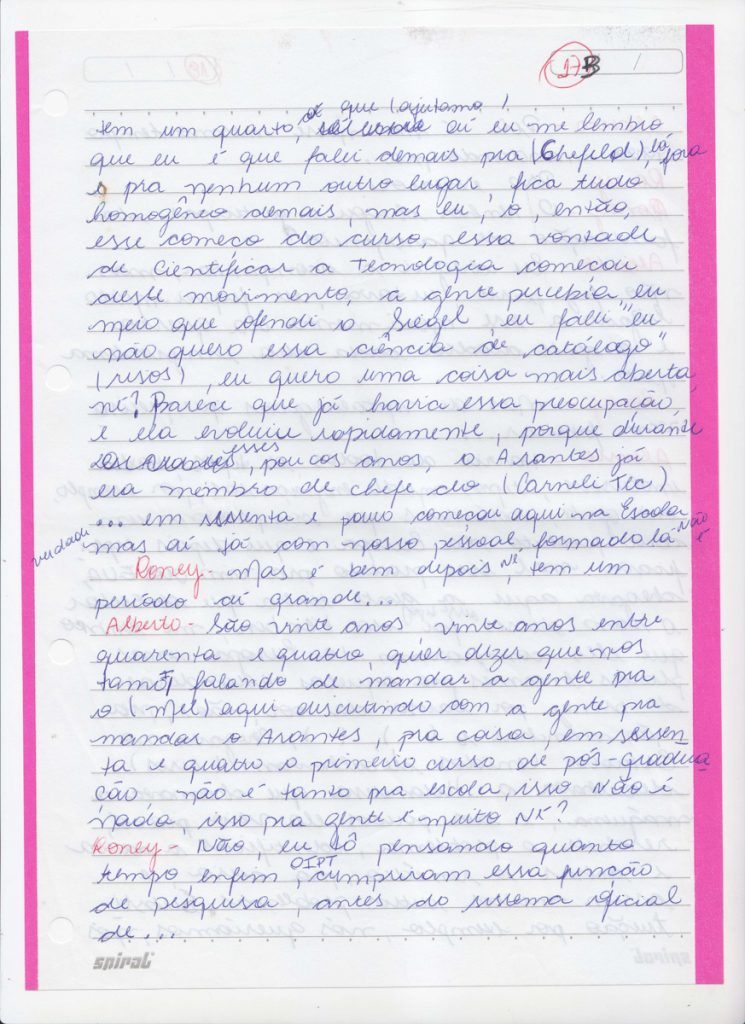 17B
que
tem um quarto, aí eu me lembro
que eu é que falei demais pra (Chefeld) lá fora
e pra nenhum outro lugar, fica tudo
homogêneo demais, mas eu, o, então,
esse começo do curso, essa vontade
de Cientificar a Tecnologia começou
deste movimento, a gente percebia, eu
meio que ofendi o Siegel, eu falei "eu
não quero essa ciência de catálogo"
(risos), eu quero uma coisa mais aberta
né? Parece que já havia essa preocupação,
e ela evoluiu rapidamente, porque durante
esses, poucos anos, o Arantes já
era membro de chefe do (Carneli Tec)
... em sessenta e pouco começou aqui na Escola
verdade mas aí já com nosso pessoal, formado lá Não é
Roney - Mas é bem depois NÉ, tem um
período aí grande...
Alberto - São vinte anos vinte anos entre
quarenta e quatro, quer dizer que nos
tamos falando de mandar a gente pra
o (Mel) aqui discutindo com a gente pra
mandar o Arantes, pra casa, em sessen
ta e quatro o primeiro curso de pós-gradua
ção não é tanto pra escola, isso Não é
nada, isso pra gente é muito NÉ?
Roney - Não, eu tô pensando quanto
tempo enfim, OIPT cumpriram essa função
de pesquisa, antes do sistema oficial
de...
spiral